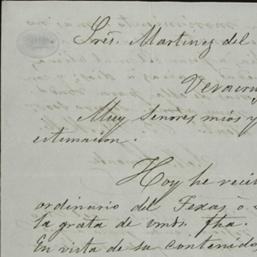 Sres. Martinez del
Veracru
Muy Señores mios y
estimacion.
Hoy he reci
ordinario del Texas ó
la grata de fha.
En vista de su contenido